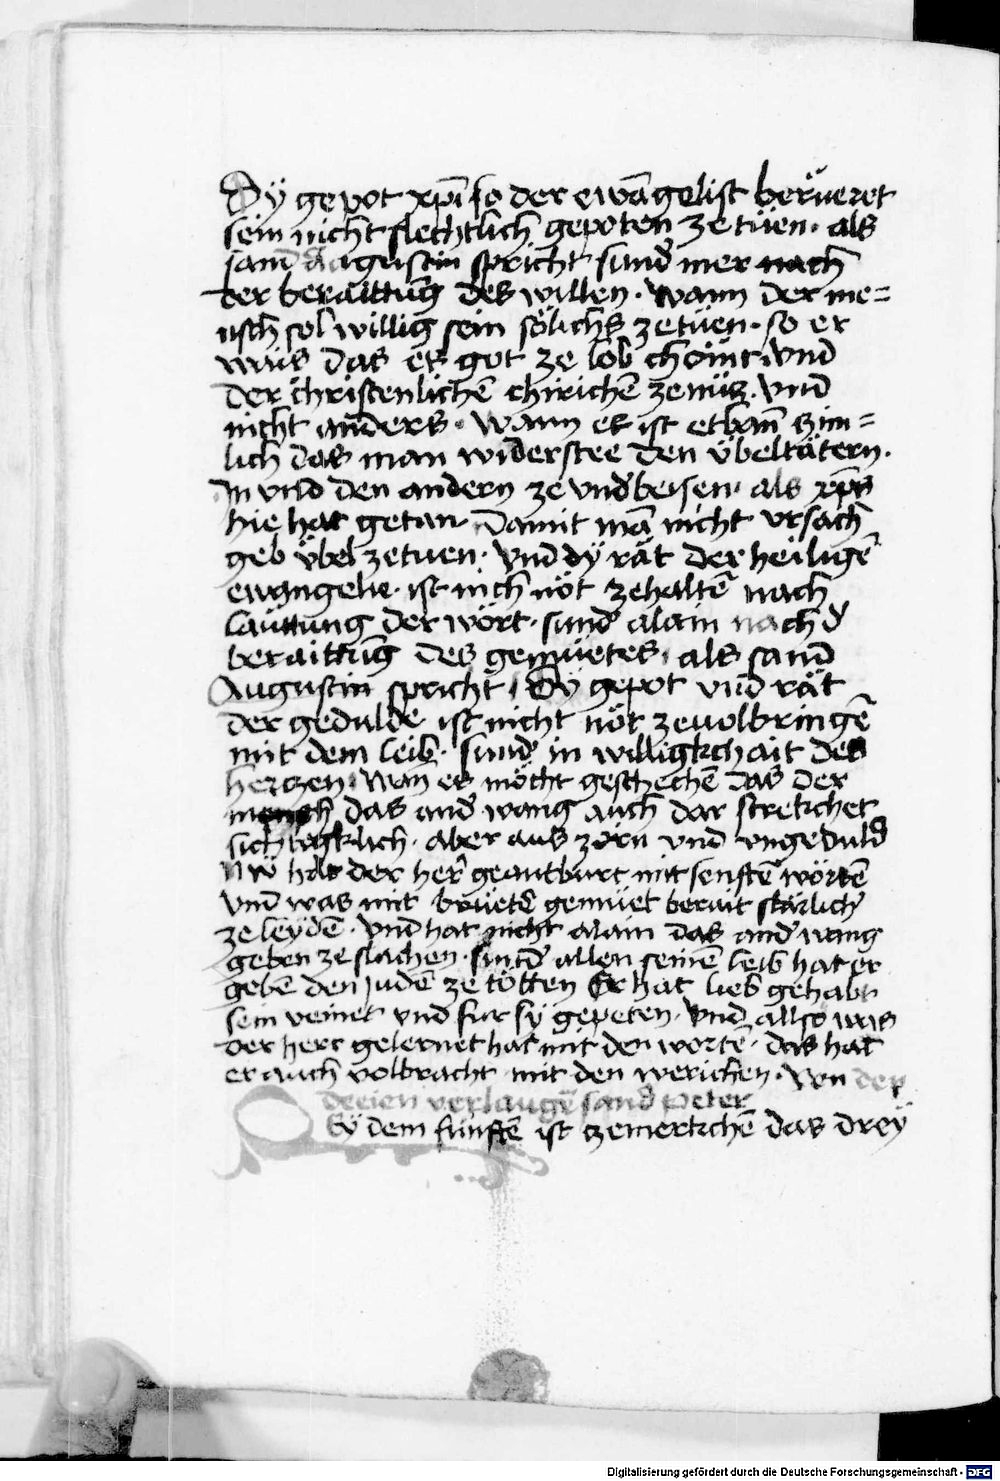 Dÿ gepot xp̄i so der ewāgelist berüeret
sein nicht slechtlich gepoten ze tüen · als
sand augustin spricht sund̕ mer nach
der beraittūg des willen · Wann der me=
nsch sol willig sein sölichs ze tüen · so er
wais das es got ze lob chöm vnd
der christenlichē chirichē ze nücz · vnd
nicht anders · Wann es ist etbañ czim=
lich das man widerstee den übeltätern ·
In vnd den andern ze vnd̕beisen · als xp̄s
hie hat getan · Damit mā nicht vrsach
geb übel ze tuen · Vnd dÿ rät der heiligē
ewangelii · ist nich nöt ze haltē nach
lauttung der wört · sund̕ alain nach d̕
beraittūg des gemüetes · als sand
Augustin spricht · Dÿ gepot vnd rät
der gedulde ist nicht nöt ze uolbringē
mit dem leib · sund̕ in willigkchait des
herczen · Wan es möcht geschechē das der
mensch das and̕ wang auch dar strekchet
sichtigklich · aber aus zorn vnd vngeduld
Nw hat der her̕ geantburt mit senftē wörtē
vnd was mit gemüet berait
ze leydē · Vnd hat nicht alain das and̕ wang
geben ze slachen · sund̕ allen seinē leib hat er
gebē den judē ze tötten Er hat lieb gehabt
sein veinet vnd fur sÿ gepeten · Vnd allso was
der herr gelernet hat mit den wortē · das hat
er auch volbracht mit den werichen · Von den
dreien verlaugē sand Peter
Bÿ dem fünftē ist ze merkchē das dreÿ
Digitalisierung gefördert durch die Deutsche Forschungsgemeinschaft - DFG